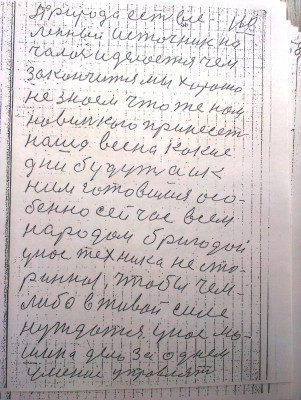 Природа ест все- 160
ленной источник на
чалом делается чем
закончится мы хорошо
не знаем что же нам
новинкого принесет
наша весна какие
дни будут а их
ним готовимся осо-
бенно сейчас всем
народом бригодой
унас техника не ста-
ринны, чтобы чем-
либо в живой силе
нуждатся, унас ма-
шина дель за одним
умение управлят